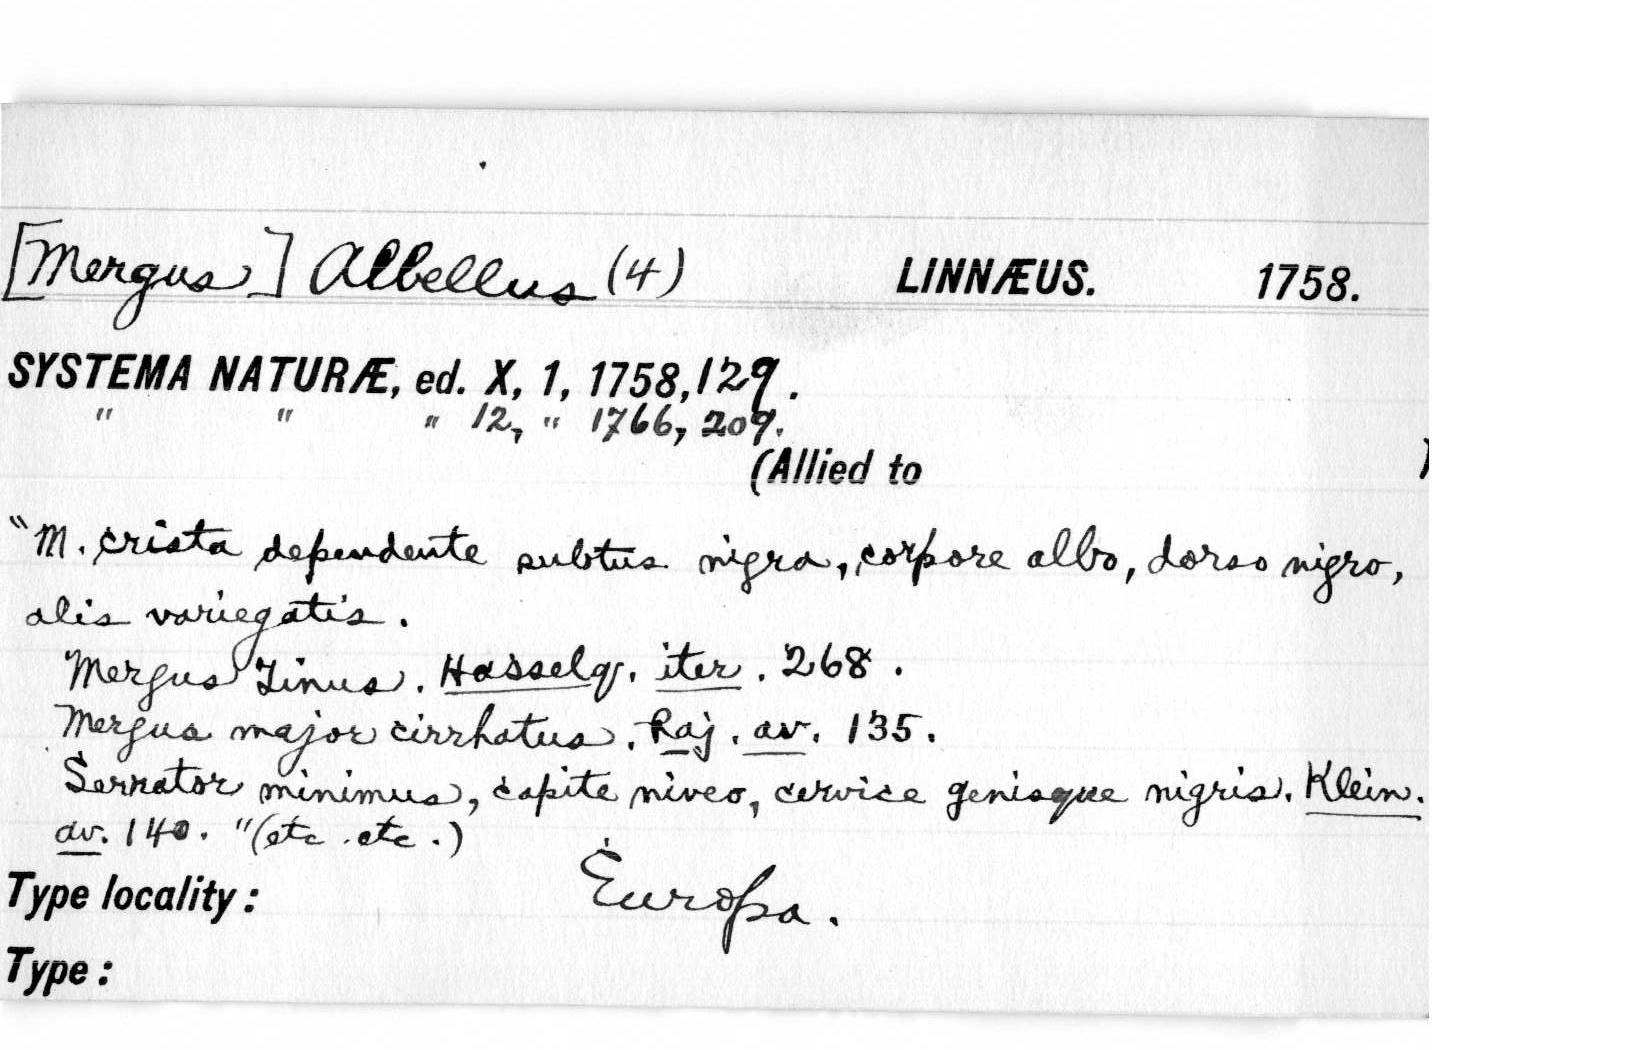 [Mergus] Albellus (4) LINNÆUS. 1758.
SYSTEMA NATURÆ, ed. X, 1, 1758, 129.
" " " 12, " 1766, 209.
(Allied to )
"M. crista dependente subtus nigra, corpore albo, dorso nigro,
alis variegatis.
Mergus Tinus. Hasselq. iter. 268.
Mergus major cirrhatus. Raj. av. 135.
Serrator minimus, capite niveo, cervice genisque nigris. Klein.
av. 140. "(etc. etc.)
Type locality: Europa.
Type: